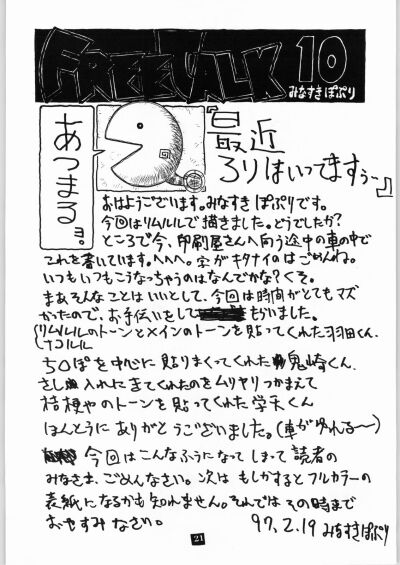 FREE TALK 10
みなすき ぽぷり
あつまるョ。
『最近
ろりはいってますぅー』
おはようございます。みなすき ぽぷりです。
今回はリムルルで描きました。どうでしたか？
ところで今、印刷屋さんへ向う途中の車の中で
これを書いています。へへへ。字がキタナイのはごめんね。
いつもいつもこうなっちゃうのはなんでかな？くそ。
まぁそんなことはいいとして、今回は時間がとてもマズ
かったので、お手伝いをしてもらいました。
リムルルのトーンとメインのトーンを貼ってくれた羽田くん、
ナコルル
ちんぽを中心に貼りまくってくれた鬼崎くん、
さし入れにきてくれたのをムリヤリつかまえて
桔梗やのトーンを貼ってくれた学天くん
ほんとうに ありがとうございました。(車がゆれる〜〜)
今回はこんなふうになって しまって 読者の
みなさま、ごめんなさい。次は もしかするとフルカラーの
表紙になるかも知れません。それでは その時まで
おやすみ なさい。
97.2.19 みなすきぽぷり
21